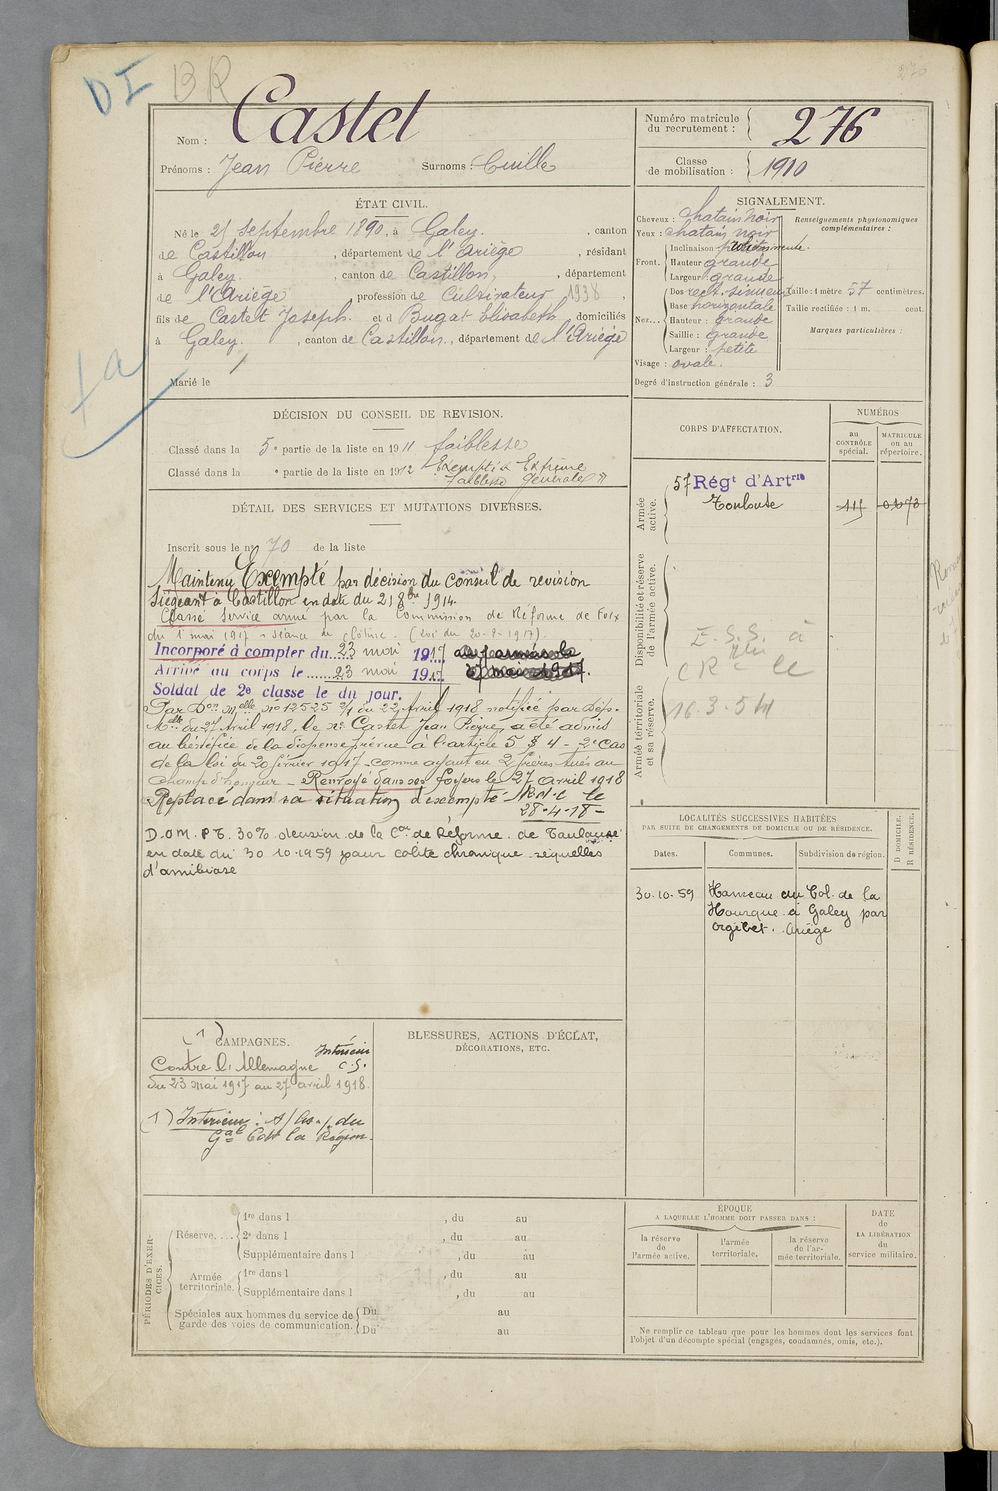 DI BR
276
Nom : Castet
Prénoms : Jean Pierre Surnoms : Cuille
Numéro matricule du recrutement : 276
Classe de mobilisation : 1910
ÉTAT CIVIL.
Né le 21 septembre 1890, à Galey, canton
de Castillon, département de l'Ariège, résidant
à Galey, canton de Castillon, département
de l'Ariège, profession de Cultivateur 1938,
fils de Castet Joseph et d Bugat Elisabeth domiciliés
à Galey, canton de Castillon, département de l'Ariège
Marié le
SIGNALEMENT.
Cheveux : chatain noir
Yeux : chatain noir
Front. Inclinaison
Hauteur grande
Largeur grande
Nez... Dos rect. sinueux
Base horizontale
Hauteur : grande
Saillie : grande
Largeur : petite
Visage : ovale.
Degré d'instruction générale : 3
Renseignements physionomiques complémentaires :
Taille : 1 mètre 57 centimètres.
Taille rectifiée : 1 m. cent.
Marques particulières :
DÉCISION DU CONSEIL DE REVISION.
Classé dans la 5e partie de la liste en 1911 faiblesse
Classé dans la e partie de la liste en 1912 Exempté Extrême
faiblesse générale
DÉTAIL DES SERVICES ET MUTATIONS DIVERSES.
Inscrit sous le no 70 de la liste
Maintenu Exempté par décision du conseil de revision
siégeant à Castillon en date du 21 8bre 1914.
Classé Service armé par la Commission de Réforme de Foix
du 1 mai 1917 - séance de clôture. (loi du 20-2-1917).
Incorporé à compter du 23 mai 1917
Arrivé au corps le 23 mai 1917
Soldat de 2e classe le du jour.
Par Don Melle no 12525 2/1 du 22 Avril 1918 notifiée par Dép.
Melle du 27 Avril 1918, le né Castet Jean Pierre, a été admis
au bénéfice de la dispense prévue à l'article 5 § 4 - 2e cas
de la loi du 20 février 1917 - comme ayant eu 2 frères tués au
champ d'honneur - Renvoyé dans ses foyers le 27 avril 1918
Replacé dans sa situation d'exempté le
28-4-18-
D.O.M. P.T. 30% décision de la Con de Réforme de Toulouse
en date du 30 10.1959 pour colite chronique séquelles
d'amibiase
CORPS D'AFFECTATION.
NUMÉROS
au CONTRÔLE spécial.
MATRICULE ou au répertoire.
Armée active.
57 Régt d'Artrie
Toulouse
Disponibilité et réserve de l'armée active.
Armée territoriale et sa réserve.
16-3-54
LOCALITÉS SUCCESSIVES HABITÉES
PAR SUITE DE CHANGEMENTS DE DOMICILE OU DE RÉSIDENCE.
D DOMICILE. R RÉSIDENCE.
Dates. Communes. Subdivision de région.
30.10.59 Hameau du Col de la
Hourque à Galey par
Orgibet. Ariège
(1) CAMPAGNES.
Intérieur
C.S.
Contre l'Allemagne
du 23 mai 1917 au 27 avril 1918.
(1) Intérieur : du
Gal Cdt la Région.
BLESSURES, ACTIONS D'ÉCLAT,
DÉCORATIONS, ETC.
PÉRIODES D'EXERCICES.
Réserve.... 1re dans l , du au
2e dans l , du au
Supplémentaire dans l , du au
Armée territoriale. 1re dans l , du au
Supplémentaire dans l , du au
Spéciales aux hommes du service de garde des voies de communication. Du au
Du au
ÉPOQUE
A LAQUELLE L'HOMME DOIT PASSER DANS :
la réserve de l'armée active.
l'armée territoriale.
la réserve de l'armée territoriale.
DATE de LA LIBÉRATION du service militaire.
Ne remplir ce tableau que pour les hommes dont les services font
l'objet d'un décompte spécial (engagés, condamnés, omis, etc.).